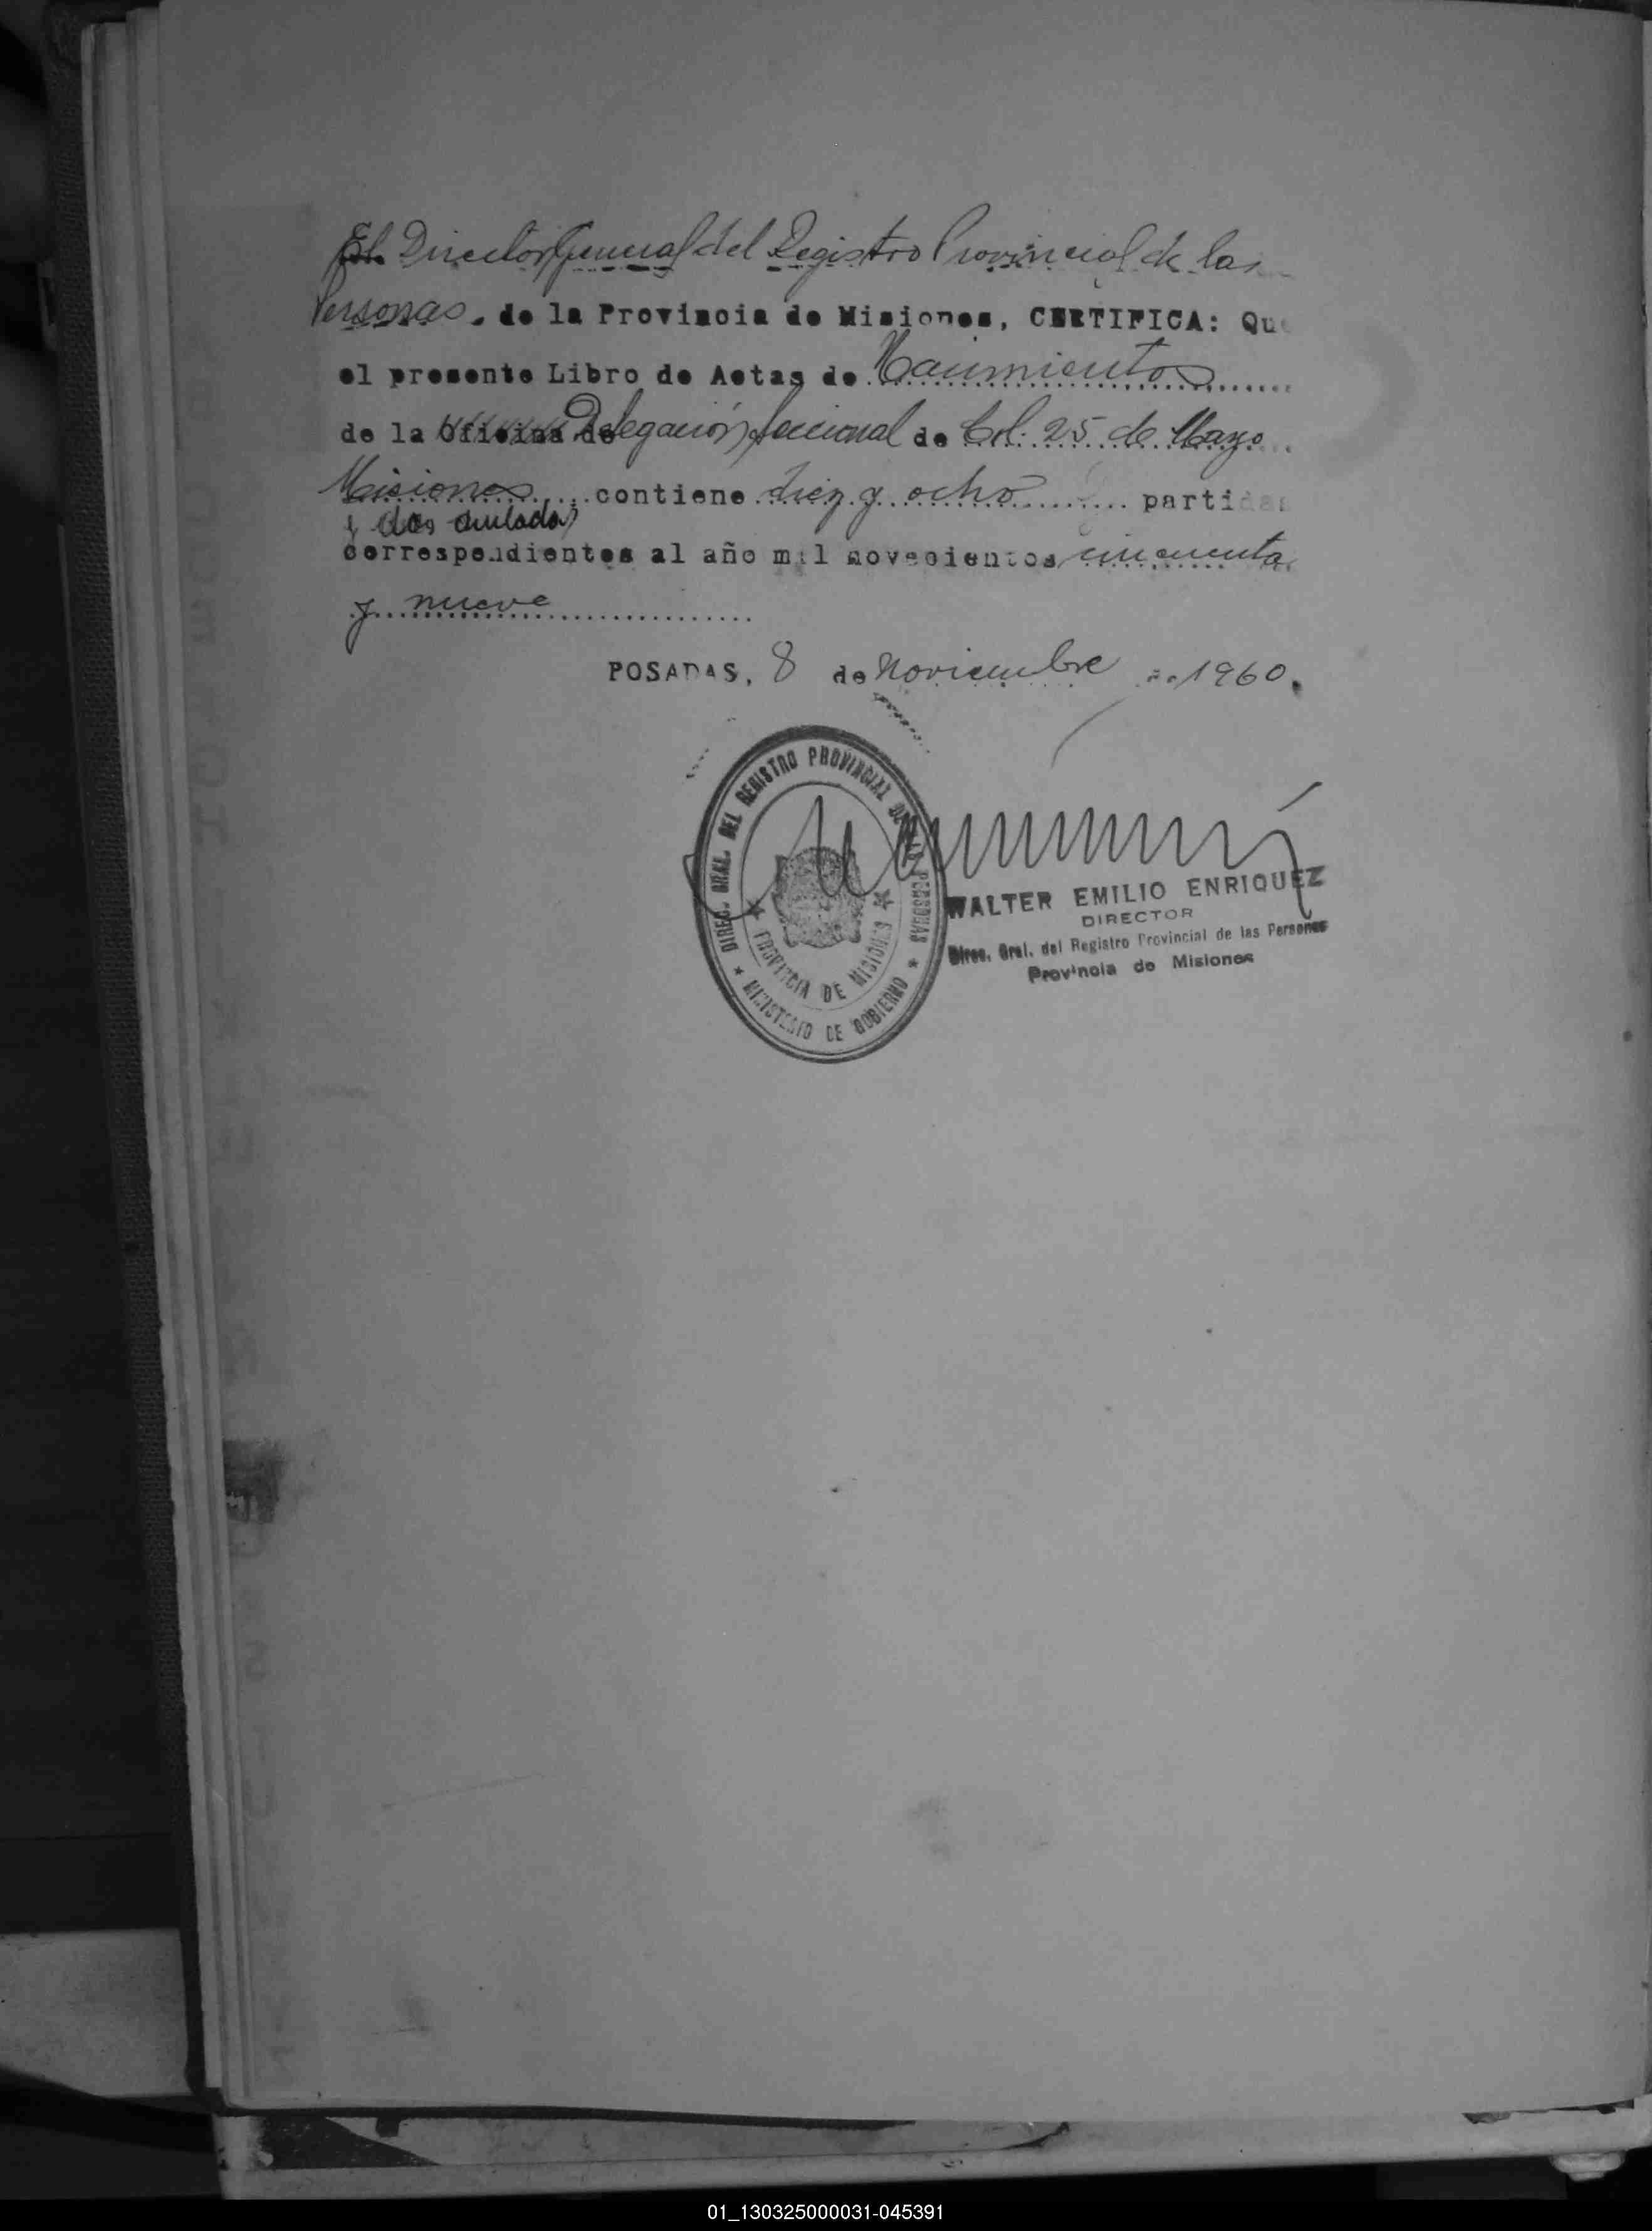 El Director General del Registro Provincial de las
Personas, de la Provincia de Misiones, CERTIFICA: Que
el presente Libro de Actas de Nacimientos
de la Oficina de Delegación Seccional de Col. 25 de Mayo
Misiones contiene diez y ocho partidas
y dos anuladas
correspondientes al año mil novecientos cincuenta
y nueve
POSADAS, 8 de Noviembre de 1960.
DIREC. GRAL. DEL REGISTRO PROVINCIAL DE LAS PERSONAS
PROVINCIA DE MISIONES
MINISTERIO DE GOBIERNO
WALTER EMILIO ENRIQUEZ
DIRECTOR
Direc. Gral. del Registro Provincial de las Personas
Provincia de Misiones
01_130325000031-045391